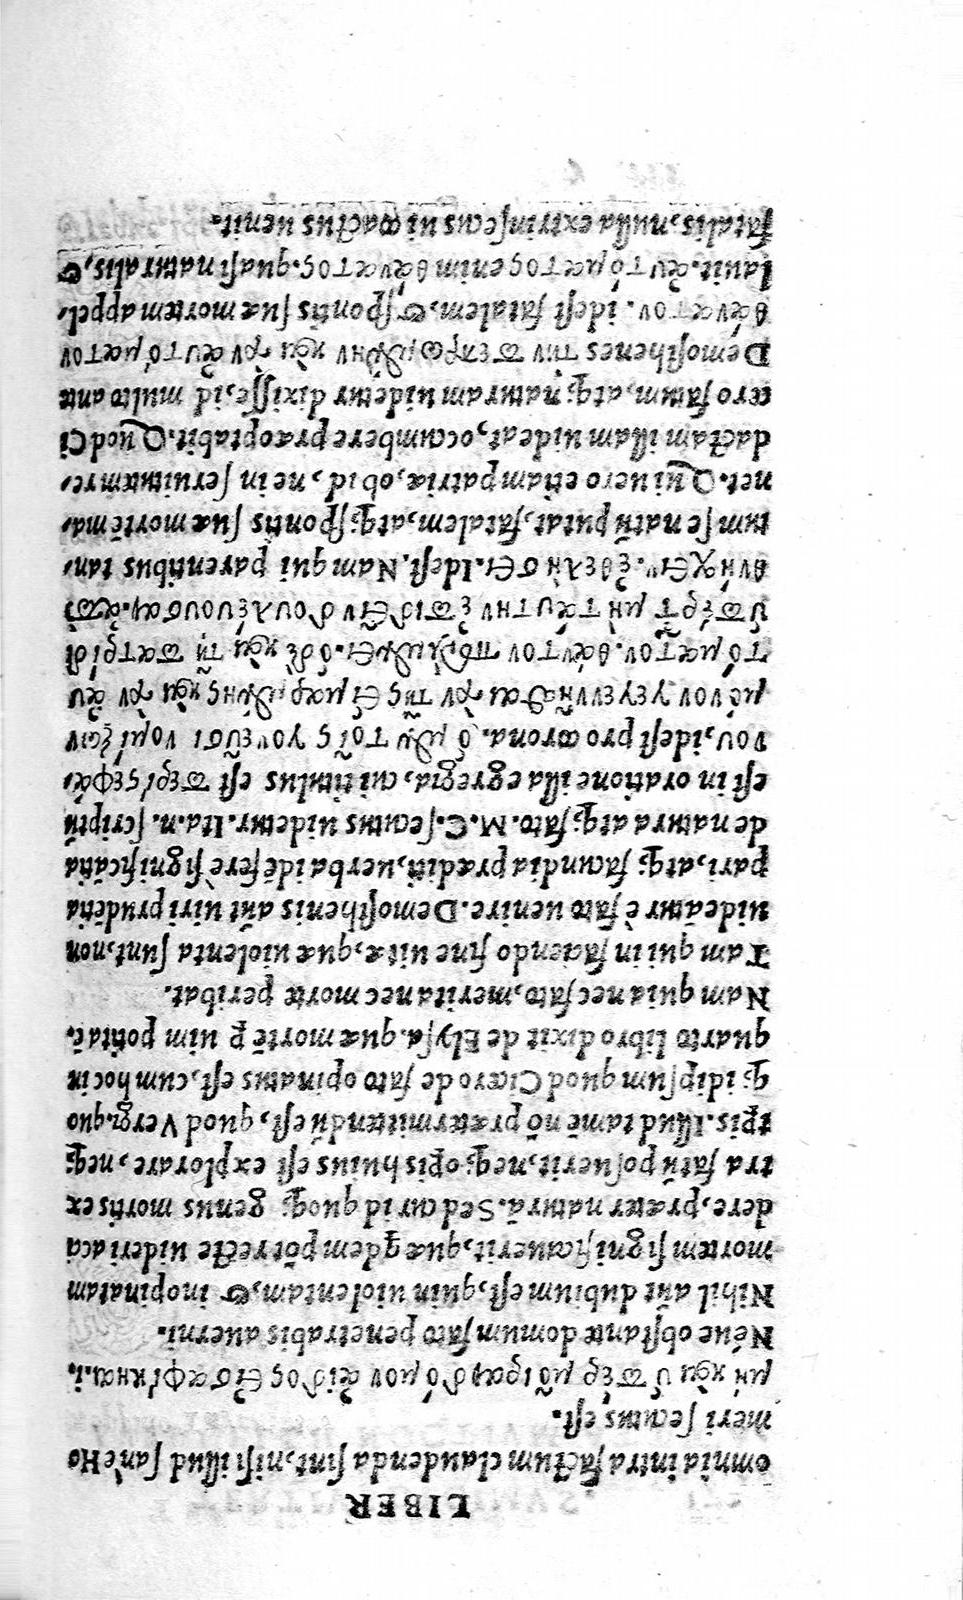 LIBER
omnia intra factum claudenda sint, nisi illud sanè Ho
meri secutus est.
μὴ καὶ ὑπέρ μοῖραν δόμον ἄϊδος εἰσαφίκηαι. i.
Néue obstante domum fato penetrabis auerni.
Nihil aūt dubium est, quin uiolentam, & inopinatam
mortem significauerit, quæ qdem pōt rectè uideri acci
dere, præter naturā. Sed cur id quoq; genus mortis ex
tra fatū posuerit, neq; opis huius est explorare, neq;
tp̄is. Illud tamē nō prætermittendū est, quod Vergi. quo
q; id ipsum quod Cicero de fato opinatus est, cum hoc in
quarto libro dixit de Elysa. quæ mortē ꝑ uim potitat.
Nam quia nec fato, merita nec morte peribat.
Tam qui in faciendo fine uitæ, quæ uiolenta sunt, non
uideātur è fato uenire. Demosthenis aūt uiri prudētia
pari, atq; facundia præditi, uerba idē ferè significātia
de natura atq; fato. M. C. secutus uidetur. Ita. n. scriptū
est in oratione illa egregia, cui titulus est περὶ στεφά⸗
νου, idest pro corona. ὁ μὲν τοῖς γονεῦσι νομίζων
μόνον γεγεννῆσθαι τὸν τῆς εἱμαρμένης καὶ τὸν αὐ
τόματον θάνατον περιμένει. ὁ δὲ καὶ τῇ πατρίδι
ὑπὲρ τοῦ μὴ ταύτην ἐπιδεῖν δουλεύουσαν ἀπο
θνήσκειν ἐθελήσει. Id est. Nam qui parentibus tan⸗
tum se natū putat, fatalem, atq; spontis suæ mortē ma⸗
net. Qui uero etiam patriæ, ob id, ne in seruitutem re⸗
dactam illam uideat, occumbere præoptabit. Quod Ci
cero fatum, atq; naturam uidetur dixisse, id multo ante
Demosthenes τὴν πεπρωμένην καὶ τὸν αὐτόματον
θάνατον. idest fatalem, & spontis suæ mortem appel⸗
lauit. αὐτόματος enim θάνατος. quasi naturalis, &
fatalis, nulla extrinsecus ui coactus uenit.